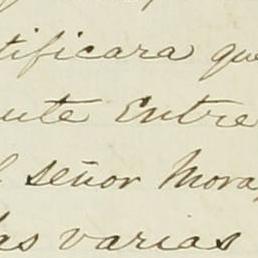 tificara que
ente Entre
l señor Mora,
las varias